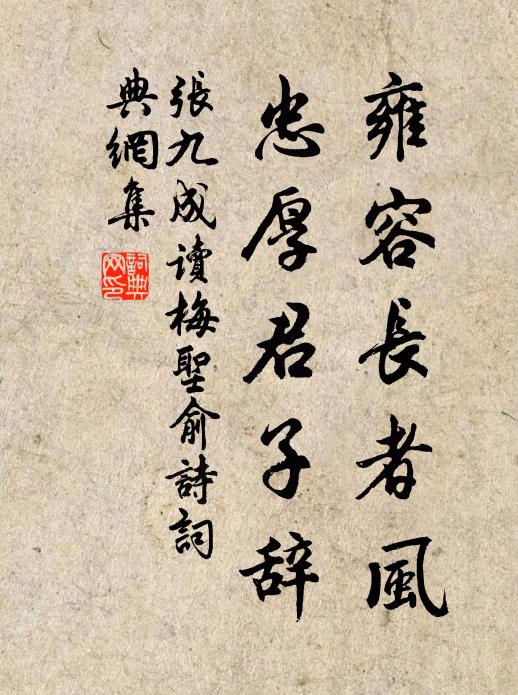 雍容長者風
忠厚君子辞
張九成讀梅聖俞詩詞
典網集
詞典
网印